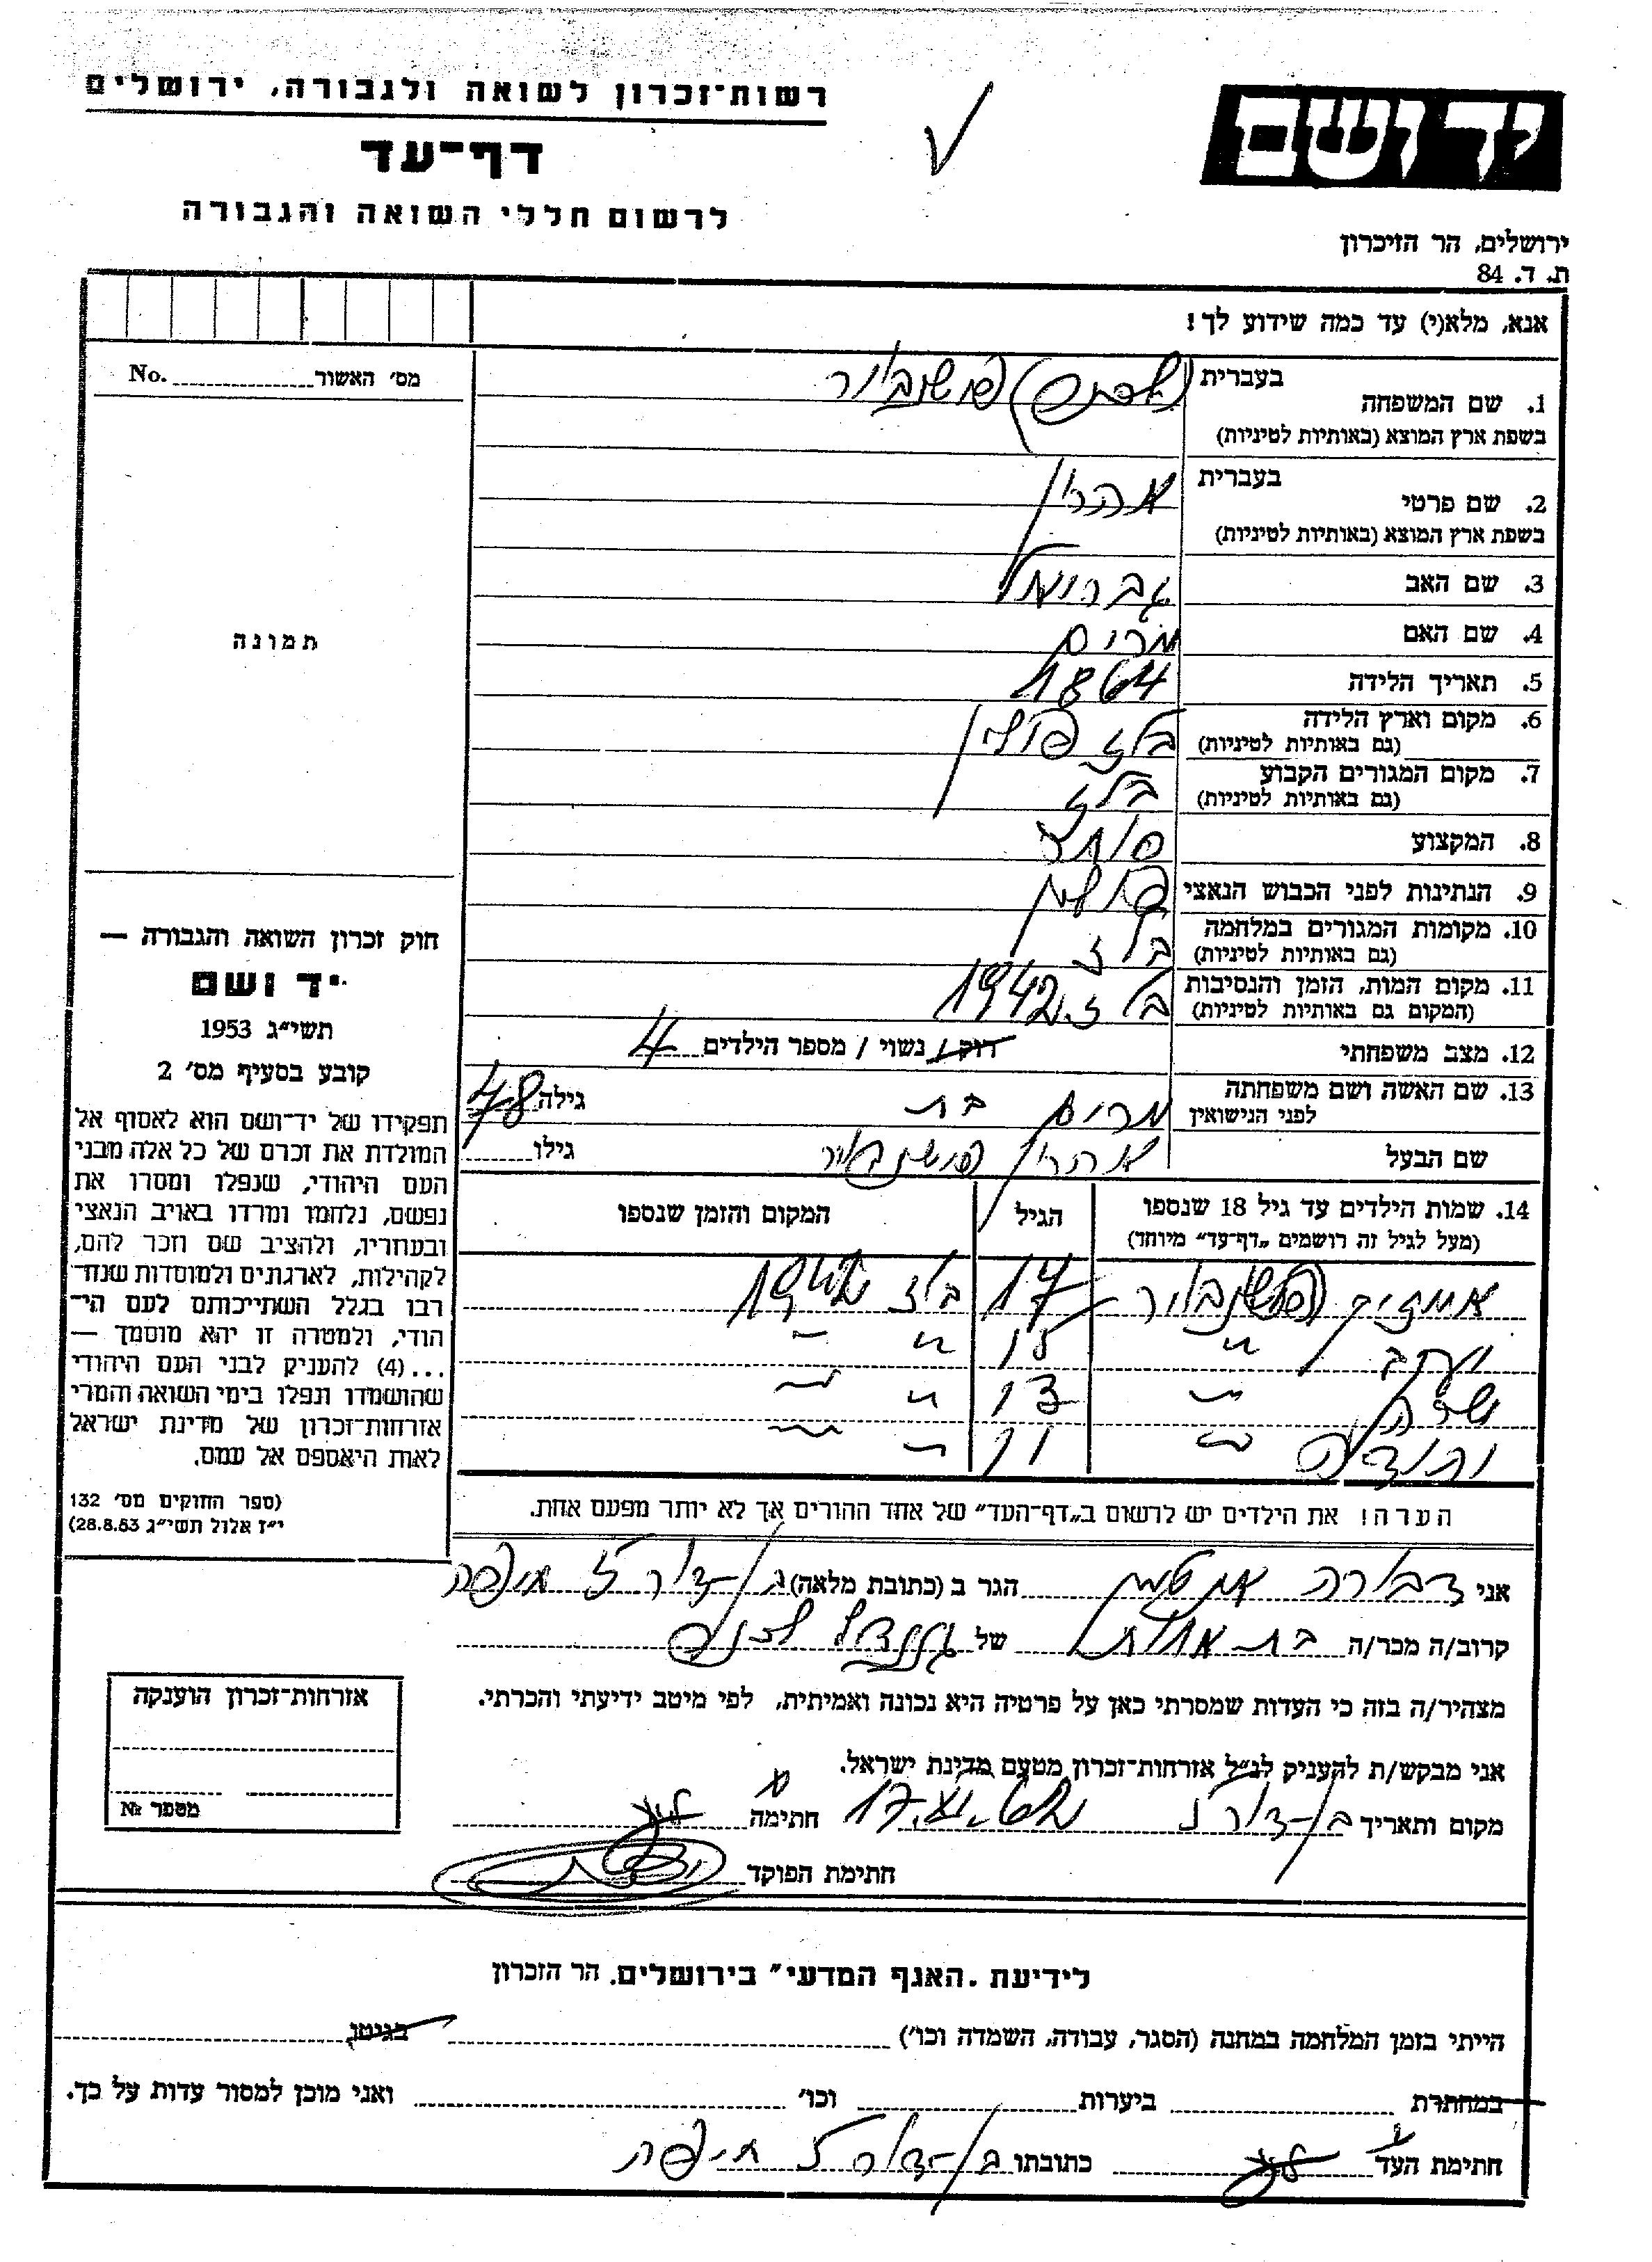 רשות-זכרון לשואה ולגבורה, ירושלים
דף-עד
לרשום חללי השואה והגבורה
יד ושם
ירושלים, הר הזיכרון
ת. ד. 84
אנא, מלא(י) עד כמה שידוע לך!
מס׳ האשור No.
תמונה
1. שם המשפחה
בעברית
בשפת ארץ המוצא (באותיות לטיניות)
2. שם פרטי
בעברית אהרן
בשפת ארץ המוצא (באותיות לטיניות)
3. שם האב גבריאל
4. שם האם מרים
5. תאריך הלידה 1864
6. מקום וארץ הלידה בלז פולין
(גם באותיות לטיניות)
7. מקום המגורים הקבוע בלז
(גם באותיות לטיניות)
8. המקצוע סוחר
9. הנתינות לפני הכבוש הנאצי פולין
10. מקומות המגורים במלחמה בלז
(גם באותיות לטיניות)
11. מקום המות, הזמן והנסיבות בלז 1942
(המקום גם באותיות לטיניות)
12. מצב משפחתי רוק / נשוי / מספר הילדים 4
13. שם האשה ושם משפחתה מרים בת גילה 48
לפני הנישואין
שם הבעל אהרן גילו
14. שמות הילדים עד גיל 18 שנספו הגיל המקום והזמן שנספו
(מעל לגיל זה רושמים „דף-עד״ מיוחד)
אייזיק 17 בלז 1942
יעקב ״ 15 ״ ״
שרה ״ 13 ״ ״
יהודית ״ 11 ״ ״
הערה: את הילדים יש לרשום ב„דף-העד״ של אחד ההורים אך לא יותר מפעם אחת.
חוק זכרון השואה והגבורה —
יד ושם
תשי״ג 1953
קובע בסעיף מס׳ 2
תפקידו של יד-ושם הוא לאסוף אל
המולדת את זכרם של כל אלה מבני
העם היהודי, שנפלו ומסרו את
נפשם, נלחמו ומרדו באויב הנאצי
ובעוזריו, ולהציב שם וזכר להם,
לקהילות, לארגונים ולמוסדות שנח-
רבו בגלל השתייכותם לעם הי-
הודי, ולמטרה זו יהא מוסמך —
...(4) להעניק לבני העם היהודי
שהושמדו ונפלו בימי השואה והמרי
אזרחות-זכרון של מדינת ישראל
לאות היאספם אל עמם.
(ספר החוקים מס׳ 132
י״ז אלול תשי״ג 28.8.53)
אני דבורה הגר ב (כתובת מלאה) חיפה
קרוב/ה מכר/ה של
מצהיר/ה בזה כי העדות שמסרתי כאן על פרטיה היא נכונה ואמיתית, לפי מיטב ידיעתי והכרתי.
אני מבקש/ת להעניק לנ״ל אזרחות-זכרון מטעם מדינת ישראל.
מקום ותאריך חתימה
חתימת הפוקד
אזרחות-זכרון הוענקה
מספר №
לידיעת „האגף המדעי״ בירושלים, הר הזכרון
הייתי בזמן המלחמה במחנה (הסגר, עבודה, השמדה וכו׳) בגיטו
במחתרת ביערות וכו׳ ואני מוכן למסור עדות על כך.
חתימת העד כתובתו חיפה